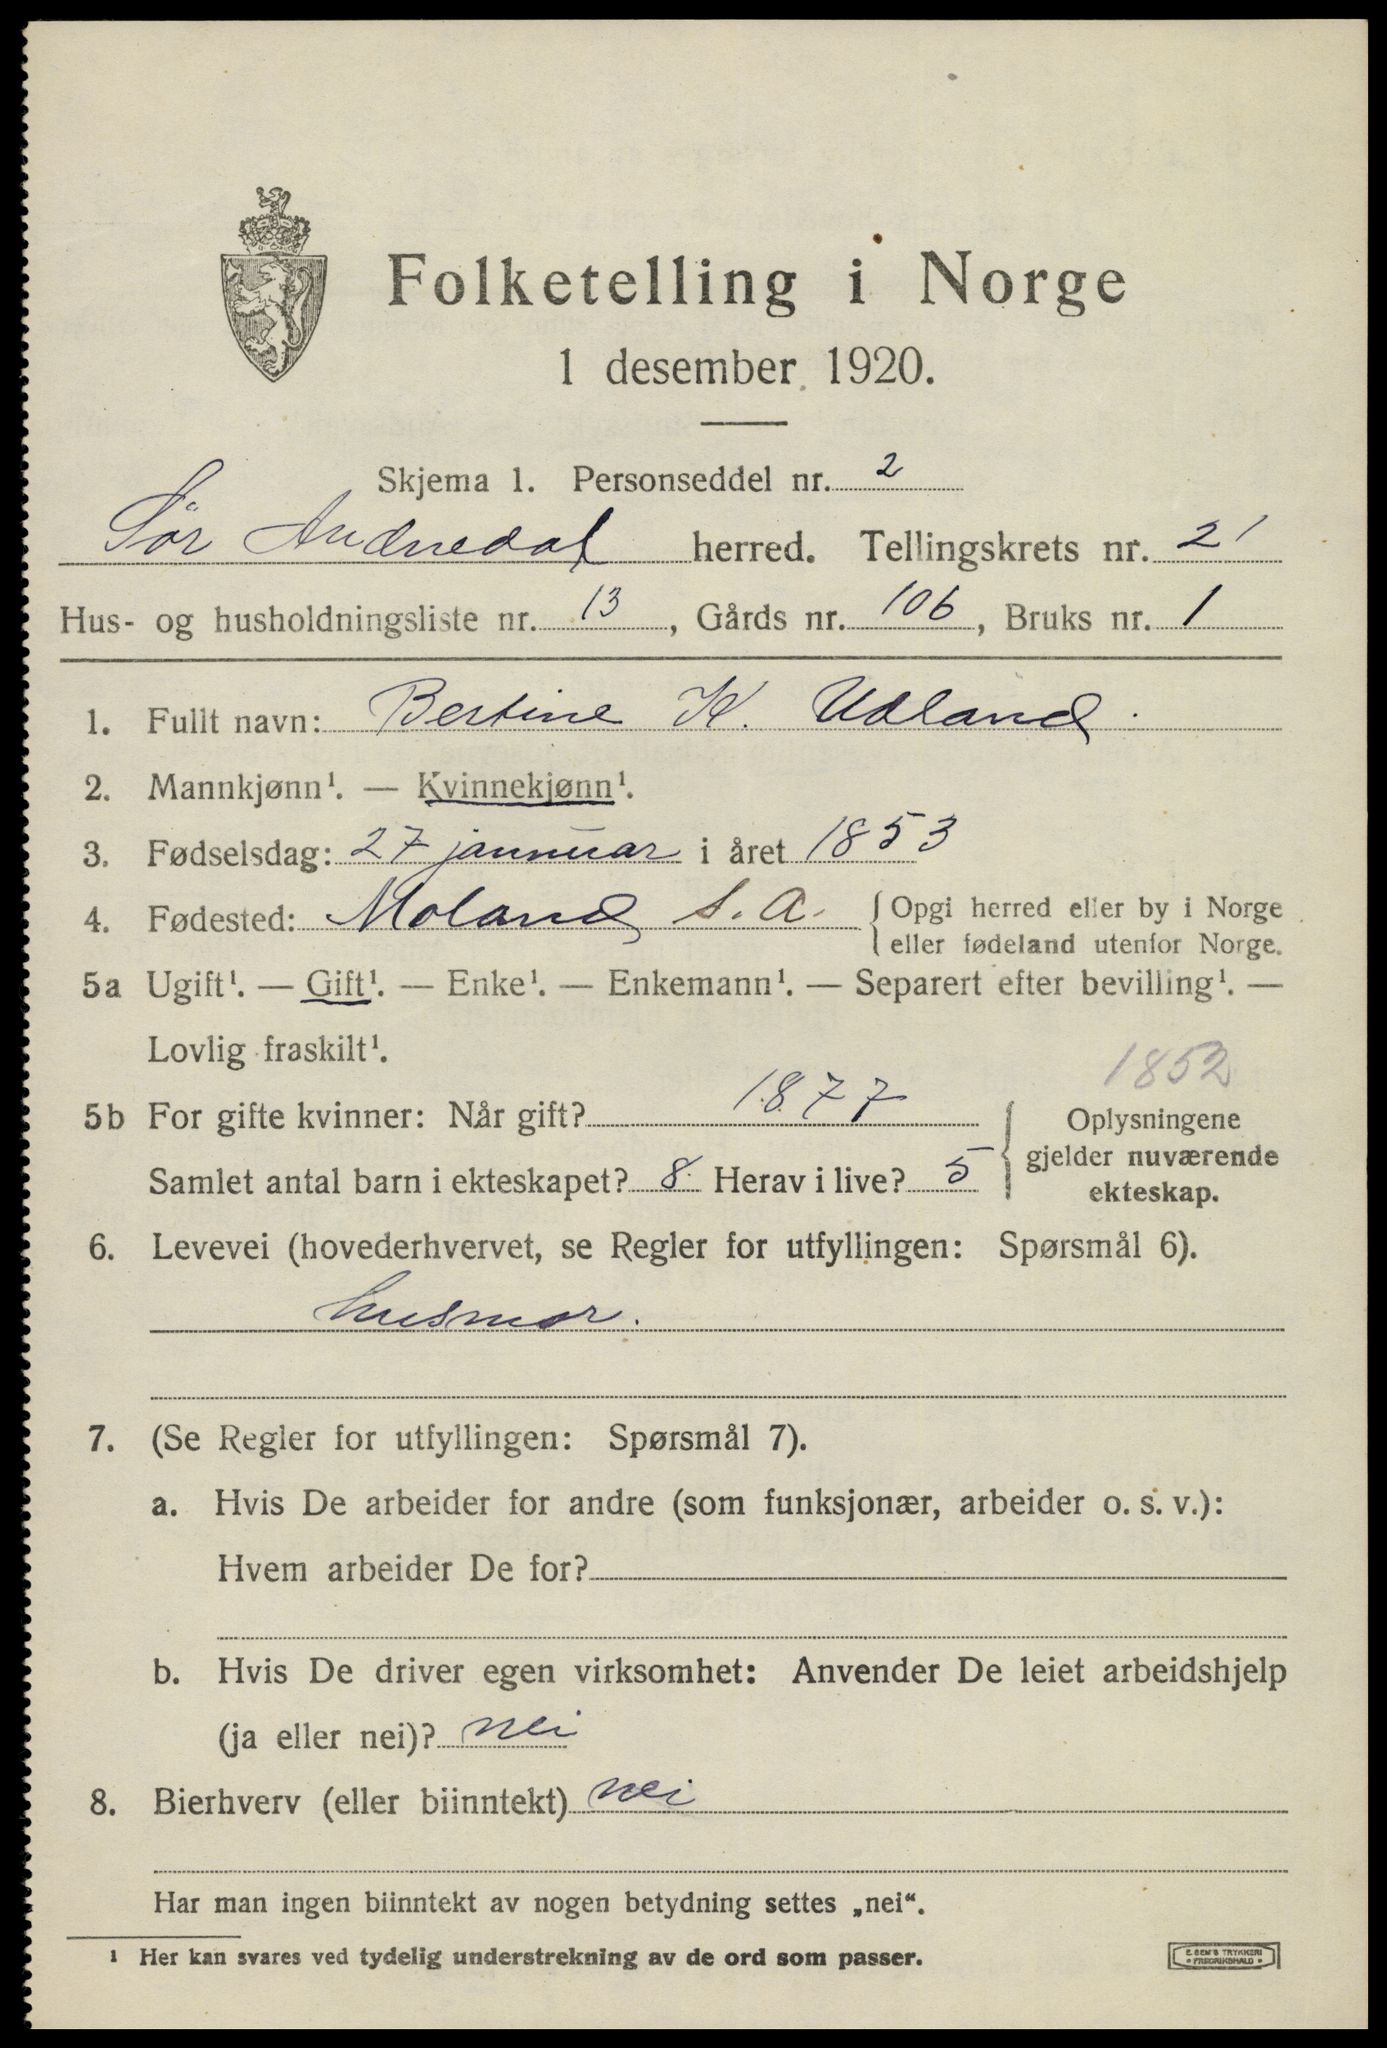 Folketelling i Norge
1 desember 1920.
Skjema 1. Personseddel nr. 2
Sør Audnedal herred. Tellingskrets nr. 21
Hus- og husholdningsliste nr. 13, Gårds nr. 106, Bruks nr. 1
1. Fullt navn: Bertine K. Udland.
2. Mannkjønn¹. — Kvinnekjønn¹.
3. Fødselsdag: 27 jannuar i året 1853
4. Fødested: Moland S. A. Opgi herred eller by i Norge
eller fødeland utenfor Norge.
5a Ugift¹. — Gift¹. — Enke¹. — Enkemann¹. — Separert efter bevilling¹. —
Lovlig fraskilt¹.
1852
5b For gifte kvinner: Når gift? 1877 Oplysningene
gjelder nuværende
ekteskap.
Samlet antal barn i ekteskapet? 8. Herav i live? 5
6. Levevei (hovederhvervet, se Regler for utfyllingen: Spørsmål 6).
husmor.
7. (Se Regler for utfyllingen: Spørsmål 7).
a. Hvis De arbeider for andre (som funksjonær, arbeider o. s. v.):
Hvem arbeider De for?
b. Hvis De driver egen virksomhet: Anvender De leiet arbeidshjelp
(ja eller nei)? nei
8. Bierhverv (eller biinntekt) nei
Har man ingen biinntekt av nogen betydning settes „nei“.
¹ Her kan svares ved tydelig understrekning av de ord som passer.
E. SEM'S TRYKKERI
• FREDRIKSHALD •